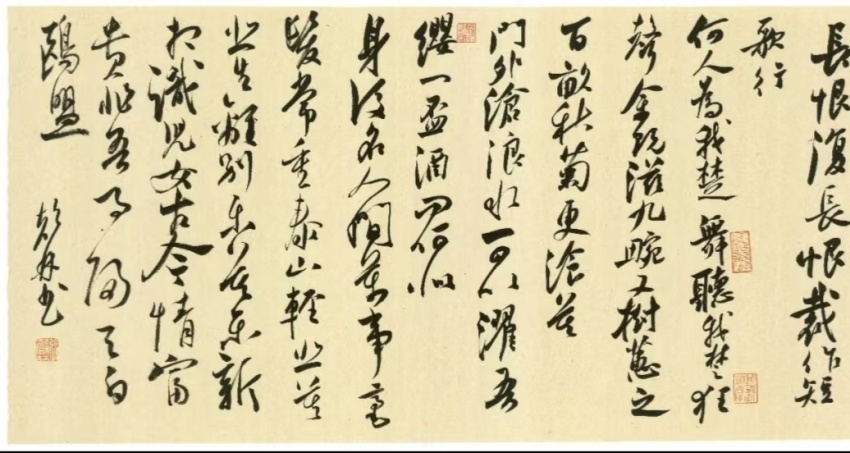 長恨復長恨裁作短
歌行
何人為我楚舞聽我楚狂
聲余既滋九畹又樹蕙之
百畝秋菊更湌英
門外滄浪水可以濯吾
纓一盃酒問何似
身後名人間萬事毫
髮常重泰山輕悲莫
悲生離別樂莫樂新
相識兒女古今情富
貴非吾事歸與白
鷗盟
書